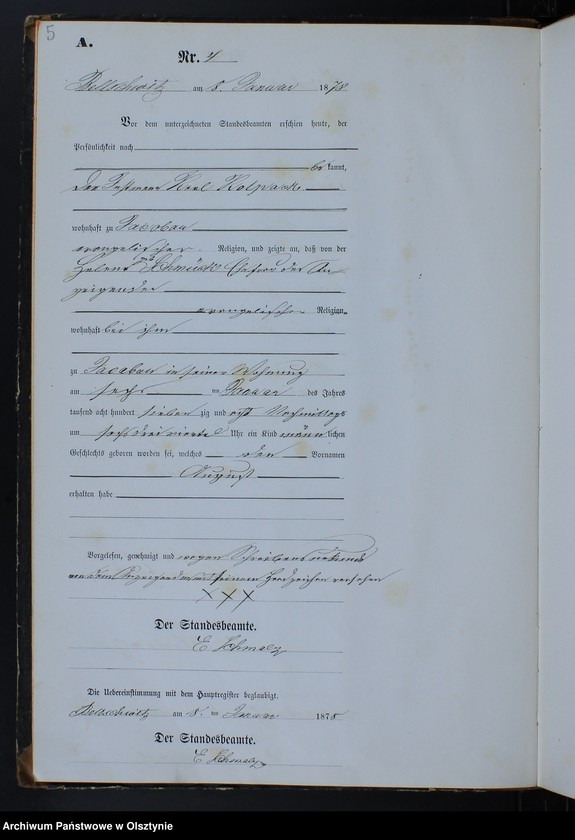 5
A.
Nr. 4
Bellschwitz am 8. Januar 1878
Vor dem unterzeichneten Standesbeamten erschien heute, der
Persönlichkeit nach
be kannt,
der Instmann Karl Kolpack
wohnhaft zu Jacobau
evangelischer Religion, und zeigte an, daß von der
Helene Schmuck Ehefrau des An
zeigenden
evangelischer Religion,
wohnhaft bei ihm
zu Jacobau in seiner Wohnung
am sechs ten Januar des Jahres
tausend acht hundert sieben zig und acht Nachmittags
um sechs drei viertel Uhr ein Kind männ lichen
Geschlechts geboren worden sei, welches den Vornamen
August
erhalten habe
Vorgelesen, genehmigt und wegen Schreibensunkunde
von dem Anzeigenden mit seinem Handzeichen versehen
XXX
Der Standesbeamte.
E Schmelz
Die Uebereinstimmung mit dem Hauptregister beglaubigt.
Bellschwitz am 8. ten Januar 1878
Der Standesbeamte.
E Schmelz
Archiwum Państwowe w Olsztynie